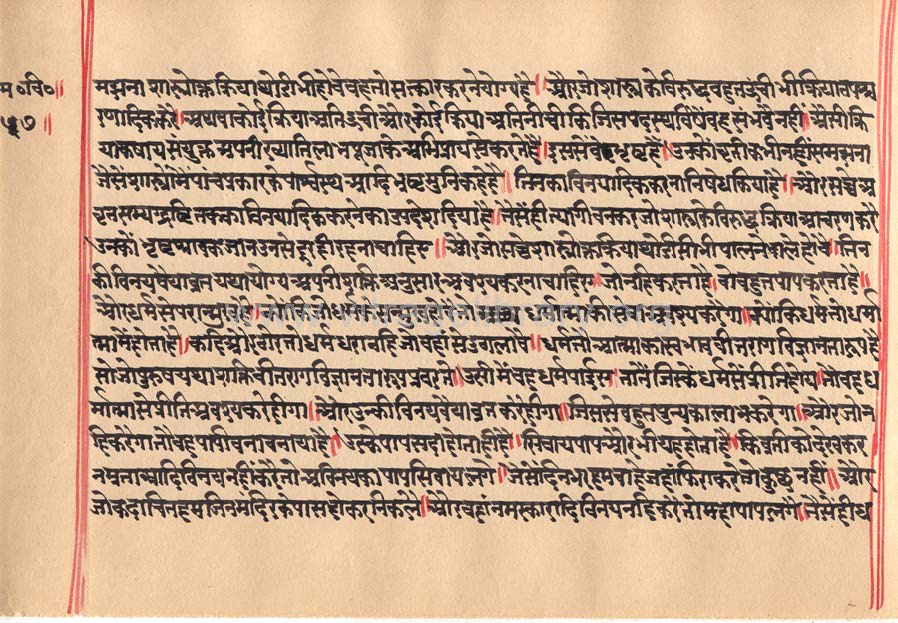 म०वि०॥
५७॥
मझना शास्त्रोक्तक्रिया थोरी भी होवे वह तो सत्कारकरने योग्य है॥ और जो शास्त्र के विरुद्ध बहुत ऊंची भी क्रिया तपश्च
रणादिक करै॥ अथवा कोई क्रिया अति ऊंची और कोई क्रिया अति नीची कि जिस पदस्थ विषें वह संभवे नहीं॥ ऐसी क्रि
या कषाय संयुक्त अपनी ख्याति लाभ पूजा के अभिप्राय से करते हैं॥ इससे वे भृष्ट है॥ उनको वृती कभी नहीं समझना
जैसें शास्त्रों में पांच प्रकार के पार्श्वस्थ आदि भृष्ट मुनि कहे हैं॥ तिनका विनयादिक करना निषेध किया है॥ और सच्चे अ
वृत सम्यग्दृष्टि तकका विनयादिक करने का उपदेश दिया है॥ तैसें ही त्यागी बनकर जो शास्त्र के विरुद्ध क्रिया आचरण करै
उनकों भृष्ट श्रावक जान उनसे दूर ही रहना चाहिए॥ और जो सच्चे शास्त्रोक्त क्रिया थोडीसी भी पालने वाले होवे॥ तिन
की विनय वैयावृत यथायोग्य अपनी शक्ति अनुसार अवश्य करना चाहिए॥ जो नहि करता है॥ वो बहुत पाप करता है॥
और धर्म से परान्मुख है॥ क्योंकि जो धर्म के सन्मुख होगा॥ सो धर्मात्मा की सेवा अवश्य करेगा॥ क्योंकि धर्म तो धर्मा
त्मा में होता है॥ कहि ओर जगे तो धर्म धरा नहि जो वहां से उठा लावे॥ धर्म तो आत्मा का स्वभाव वीतराग विज्ञानता रूप है
सो जो पुरुष यथाशक्ति वीतराग विज्ञानता रूप प्रवर्ते॥ उसी में वह धर्म पाईए॥ तातें जिसकें धर्म सें प्रीति होय॥ तो वह ध
र्मात्मा से प्रीति अवश्य करेहीगा॥ और उनकी विनय वैयावृत करेहीगा॥ जिससे बहुत पुन्य का लाभ करेगा॥ और जो न
हि करेगा तो वह पापी बना बनाया है॥ उस्के पाप सदा होता ही है॥ सिवाय पाप और भी यह होता है॥ कि वृती को देखकर
नमना आदि विनय नहीं करै तो अविनय का पाप सिवाय लगे॥ जैसे दिनभर हम चाहे जहां फिरा करे तो कुछ नहीं॥ और
जो कदाचित हम जिनमंदिर के पास होकर निकले॥ और वहां नमस्कारादि विनय नहि करे तो महा पाप लगे॥ तैसें ही ध